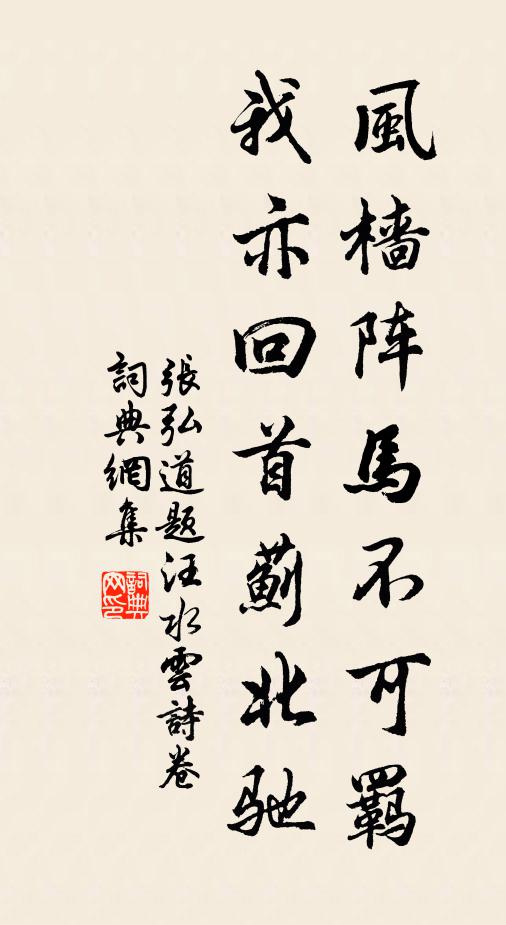 風檣阵馬不可羁
我亦回首薊北驰
張弘道题汪水雲詩卷
詞典網集
詞典網印